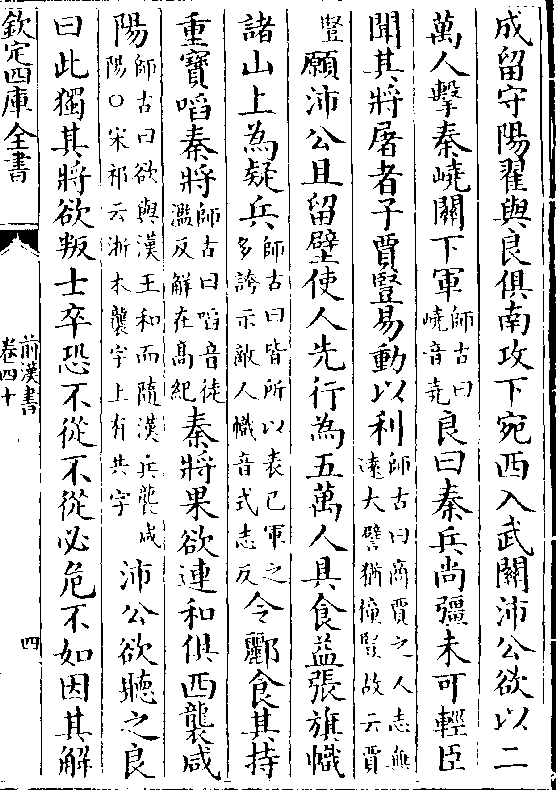 成留守陽翟與良俱南攻下宛西入武關沛公欲以二
萬人擊秦嶢關下軍師古曰嶢音堯良曰秦兵尚彊未可輕臣
聞其將屠者子賈豎易動以利師古曰商賈之人志無遠大譬猶僮豎故云賈
豎願沛公且留壁使人先行為五萬人具食益張旗幟
諸山上為疑兵師古曰皆所以表己軍之多誇示敵人幟音式志反令酈食其持
重寶啗秦將師古曰啗音徒濫反解在高紀秦將果欲連和俱西襲咸
陽師古曰欲與漢王和而隨漢兵襲咸陽○宋祁云浙本襲字上有共字沛公欲聽之良
曰此獨其將欲叛士卒恐不從不從必危不如因其解
欽定四庫全書
前漢書
卷四十
四